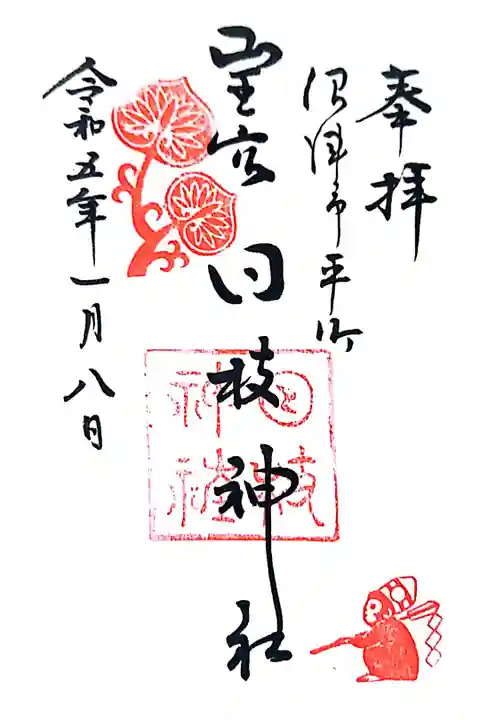 奉拝
沼津市平町
山王宮 日枝神社
日枝
神社
令和五年一月八日